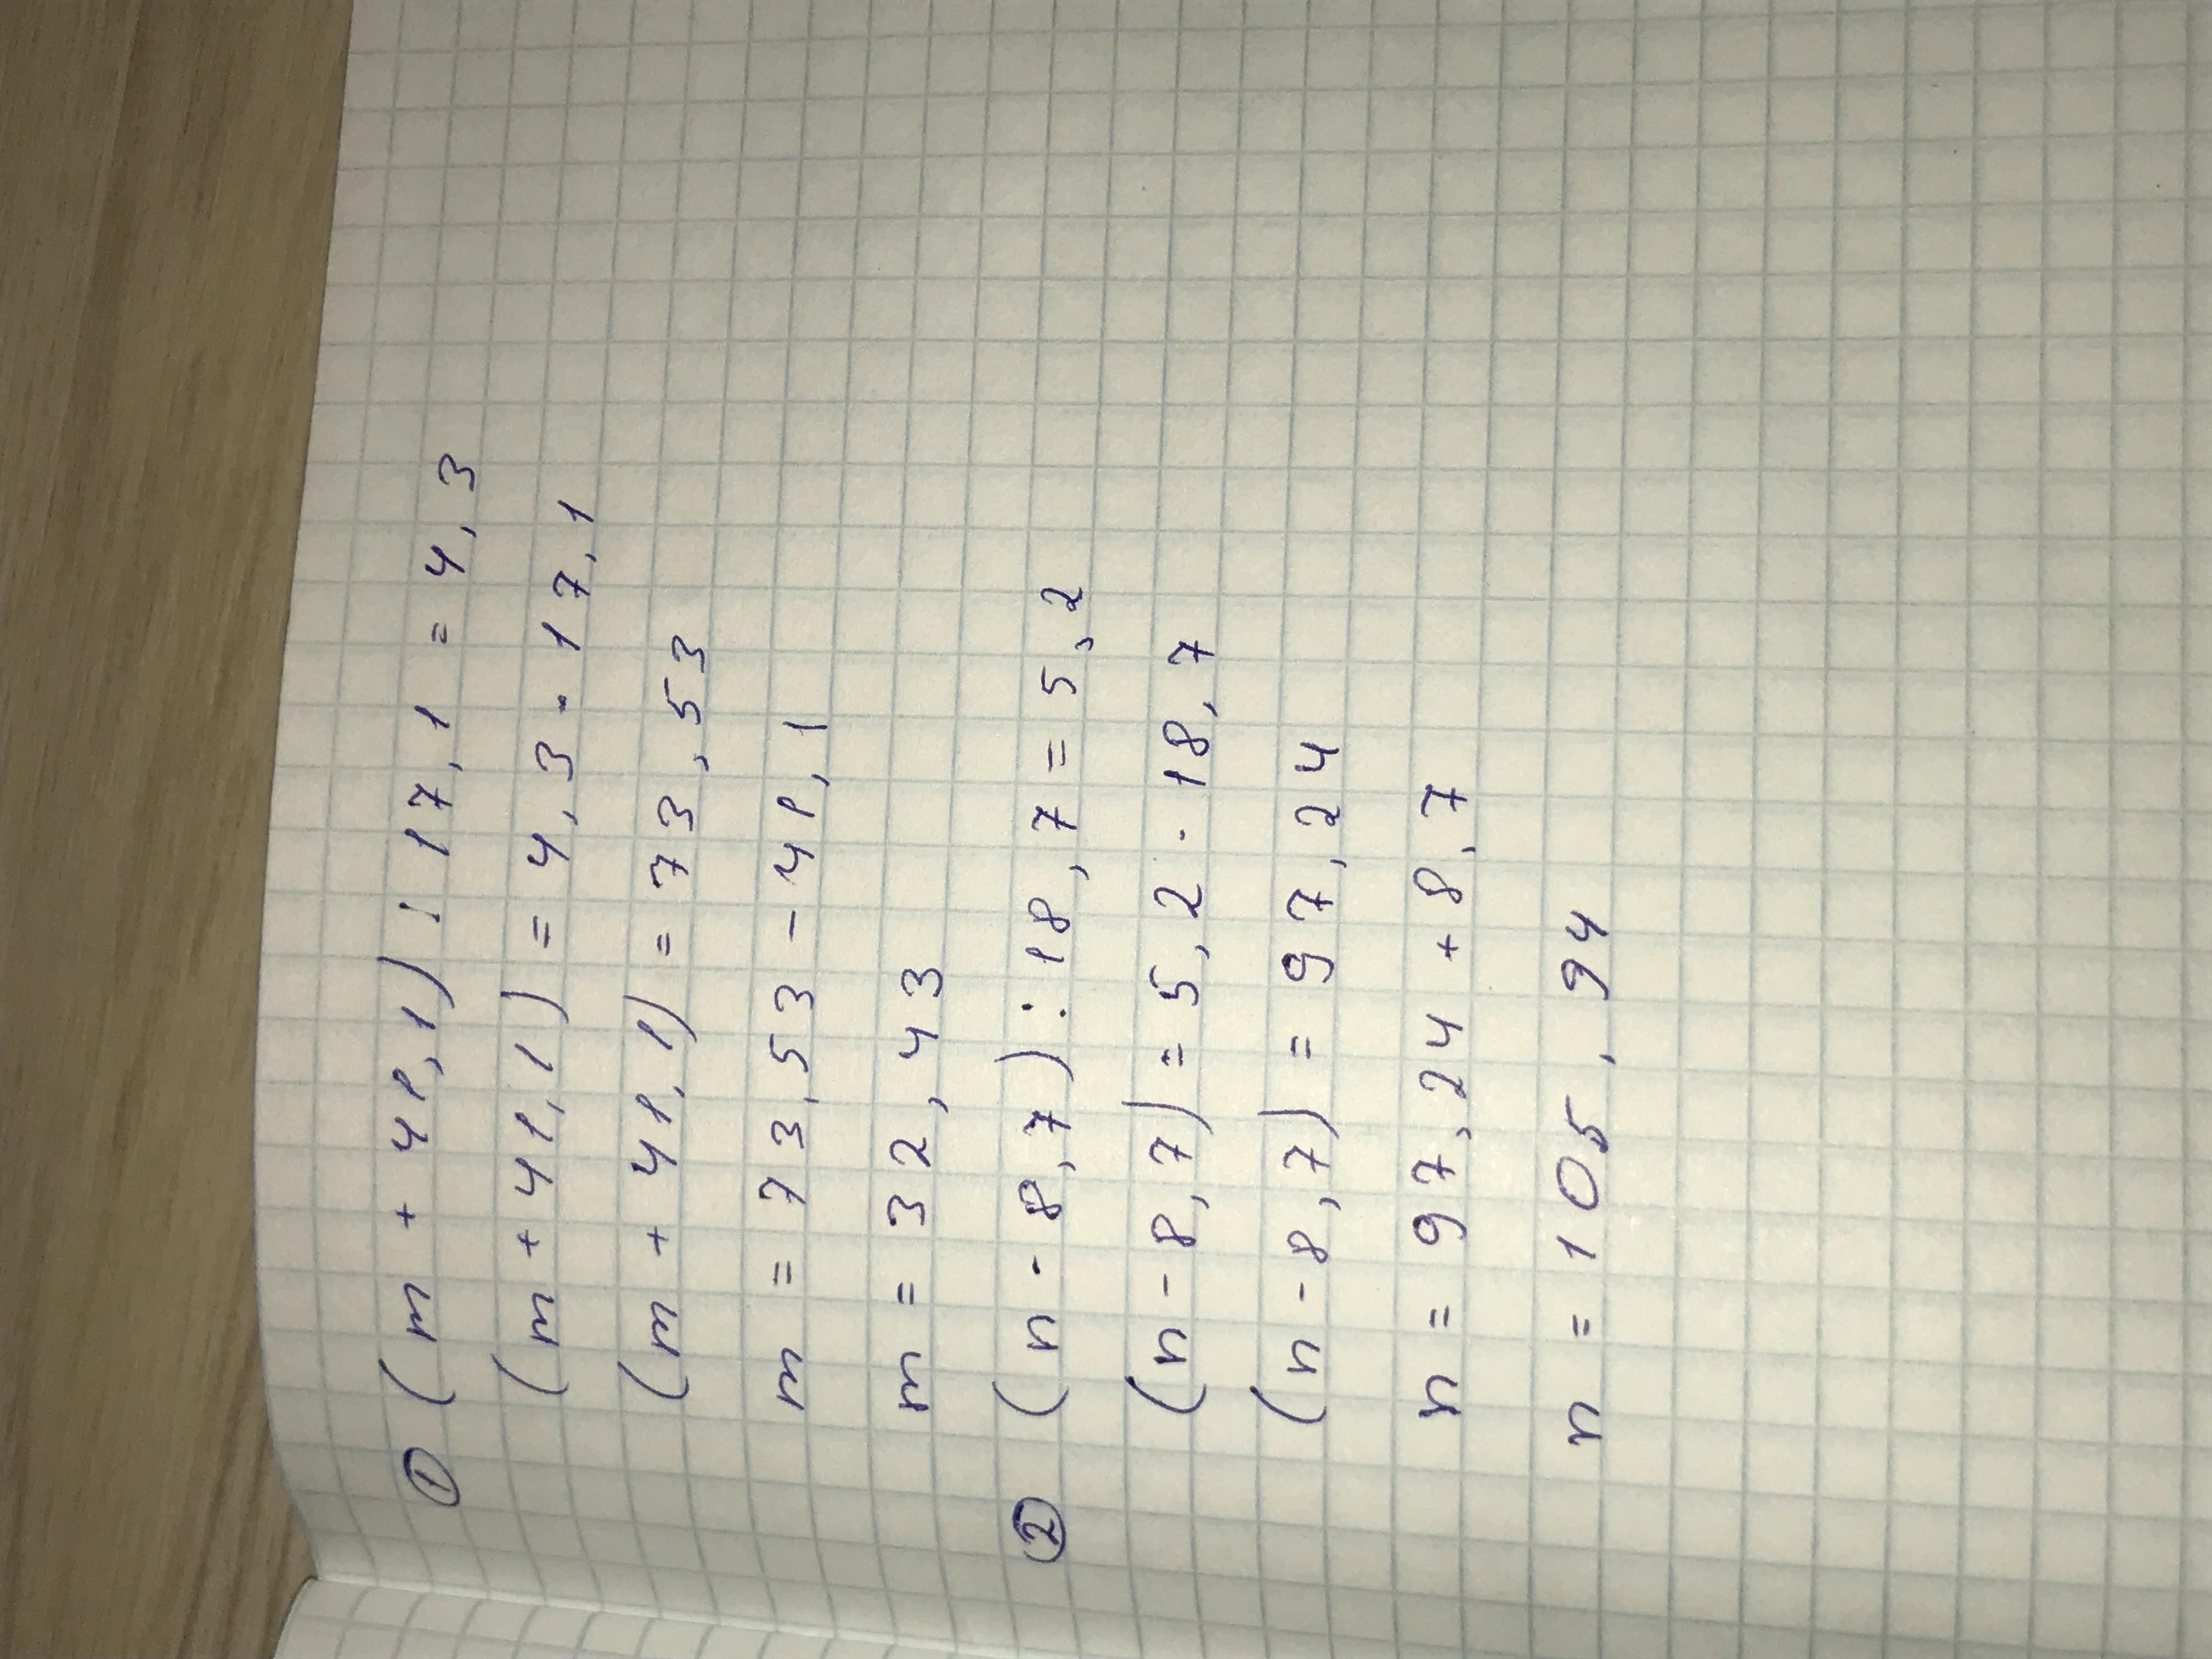 ① (m + 41,1) : 17,1 = 4,3
(m + 41,1) = 4,3 · 17,1
(m + 41,1) = 73,53
m = 73,53 - 41,1
m = 32,43
② (n - 8,7) : 18,7 = 5,2
(n - 8,7) = 5,2 · 18,7
(n - 8,7) = 97,24
n = 97,24 + 8,7
n = 105,94